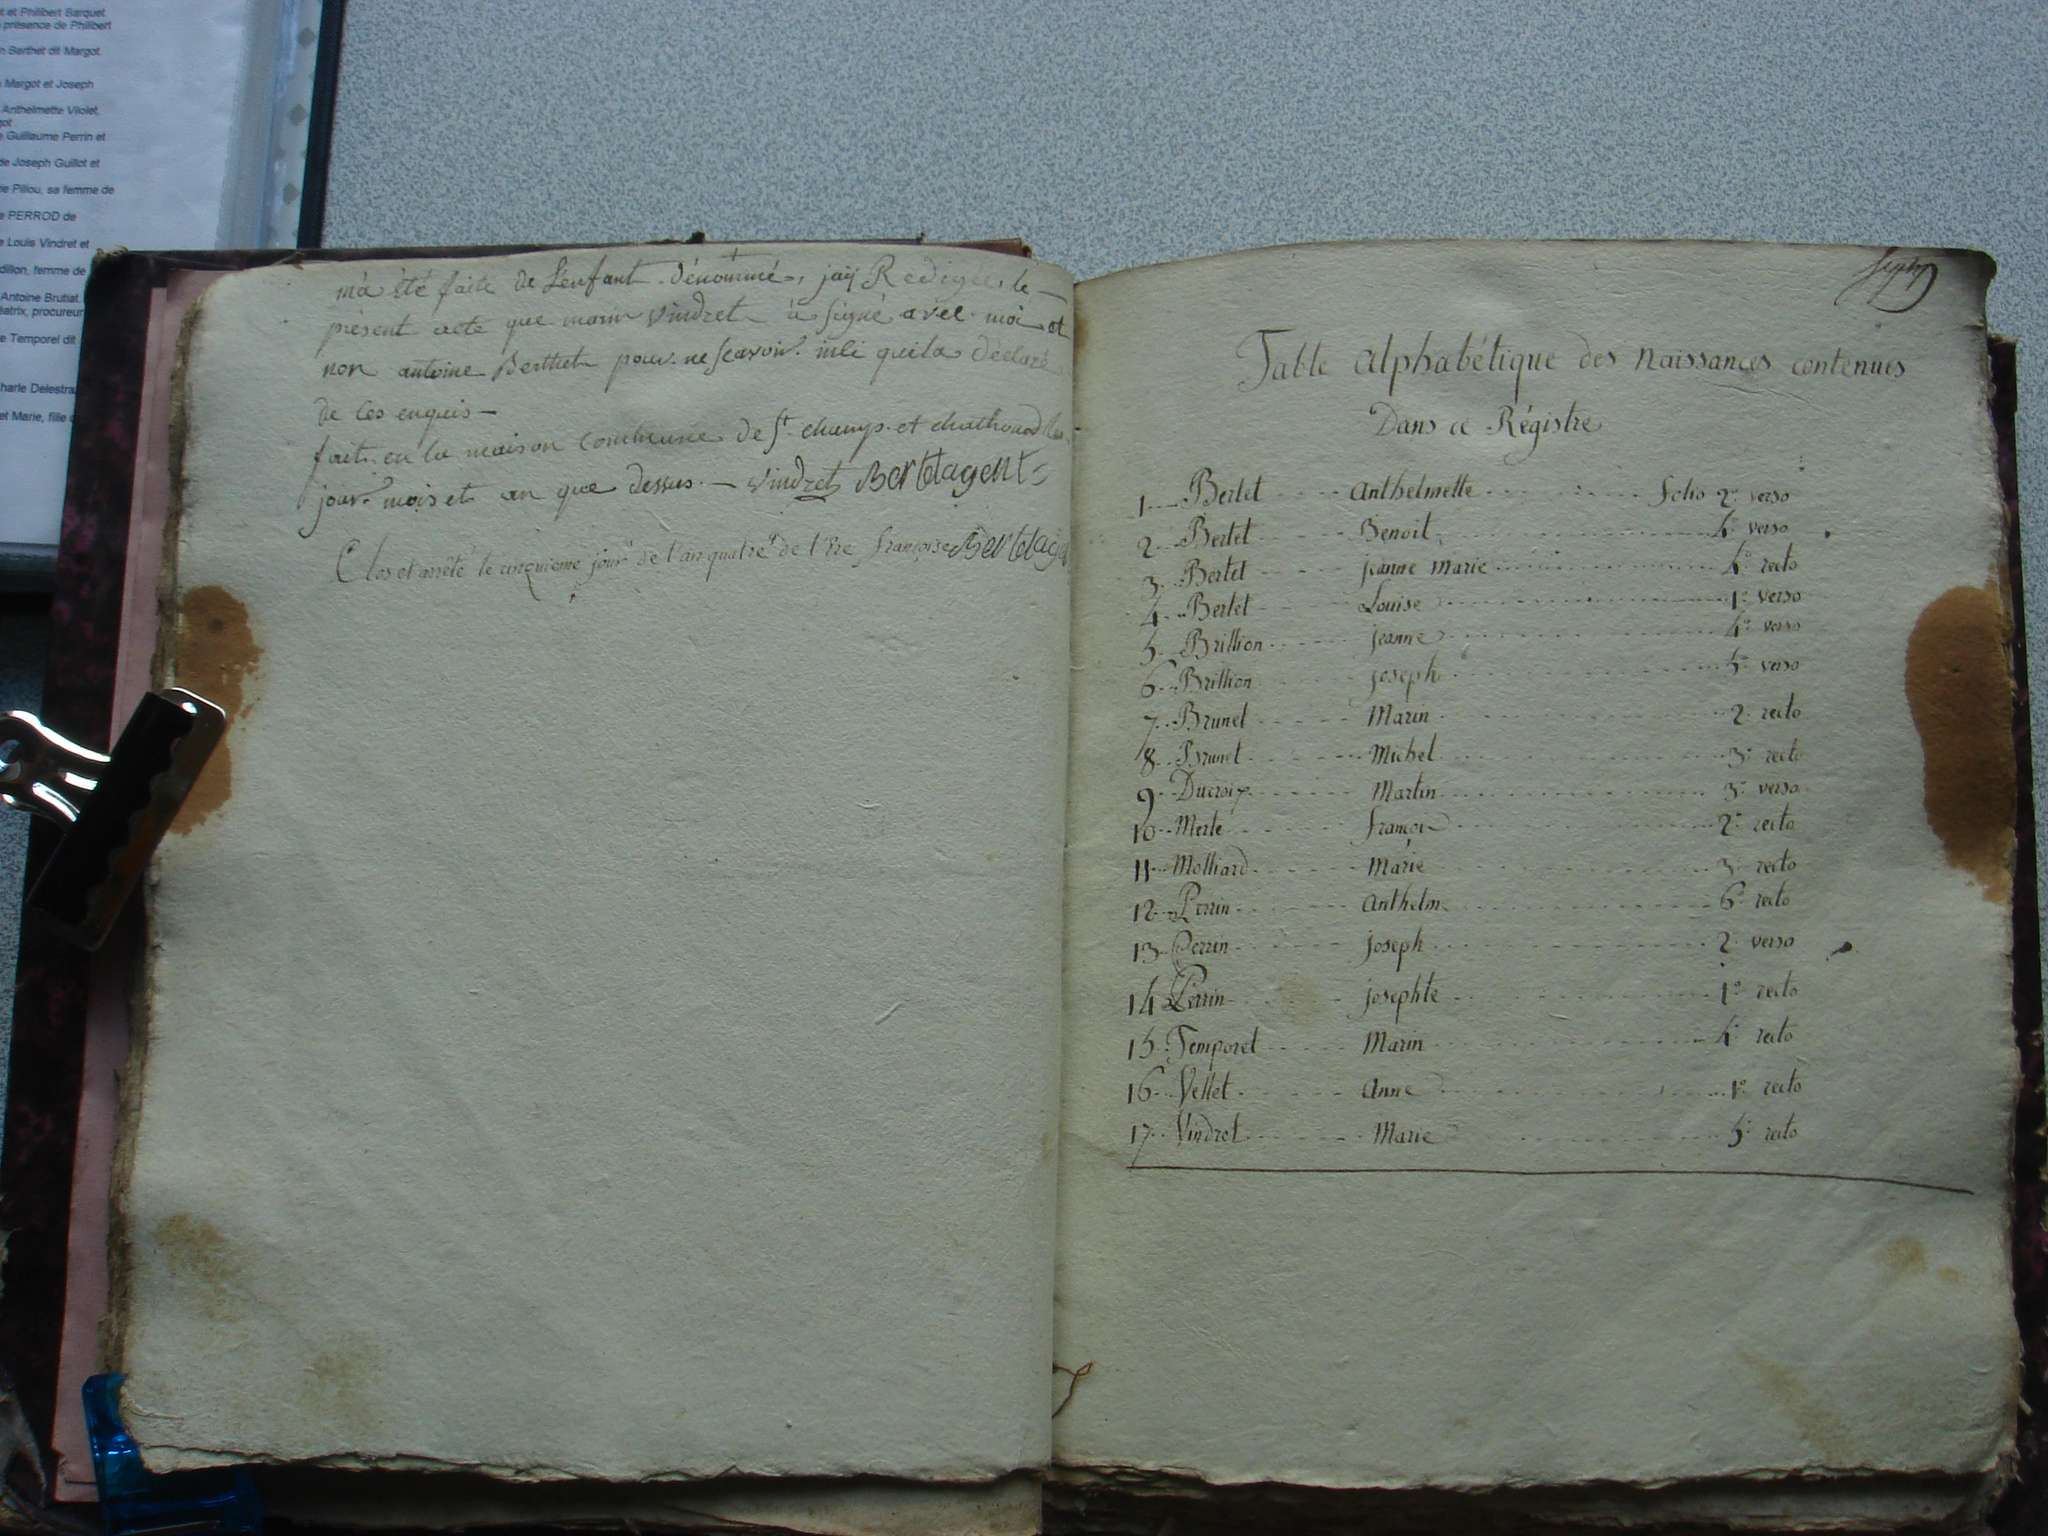 et Philibert Barquet
présence de Philibert
n Berthet dit Margot.
Margot et Joseph
Anthelmette Vilolet,
got
e Guillaume Perrin et
de Joseph Guillot et
ie Pillou, sa femme de
e PERROD de
e Louis Vindret et
dillon, femme de
Antoine Brutiat.
éatrix, procureur
e Temporel dit
harle Delestra
et Marie, fille
m'a été faite de L'enfant dénommé, jaÿ Redigée le
présent acte que marin vindret à signé avec moi et
non antoine Berthet pour ne scavoir inli quila déclaré
de ces enquis
fait en la maison commune de St champ et chathonod les
jour mois et an que dessus. vindret Bertetagent
Clos et arrêté le cinquieme jour de l'an quatre de l'Ere françoise Bertetag
Table alphabétique des Naissances contenues
Dans ce Régistre
1 Bertet Anthelmette folio 2 verso
2 Bertet Benoit 4 verso
3 Bertet jeanne Marie 4 recto
4 Bertet Louise 1 verso
5 Brillion jeanne 4 verso
6 Brillion joseph 5 verso
7 Brunet Marin 2 recto
8 Brunet Michel 3 recto
9 Ducroix Martin 3 verso
10 Merle françois 2 recto
11 Molliard Marie 3 recto
12 Perrin Anthelm 6 recto
13 Perrin joseph 2 verso
14 Perrin josephte 1º recto
15 Temporel Marin 4 recto
16 Vellet Anne 1º recto
17 Vindret Marie 5 recto